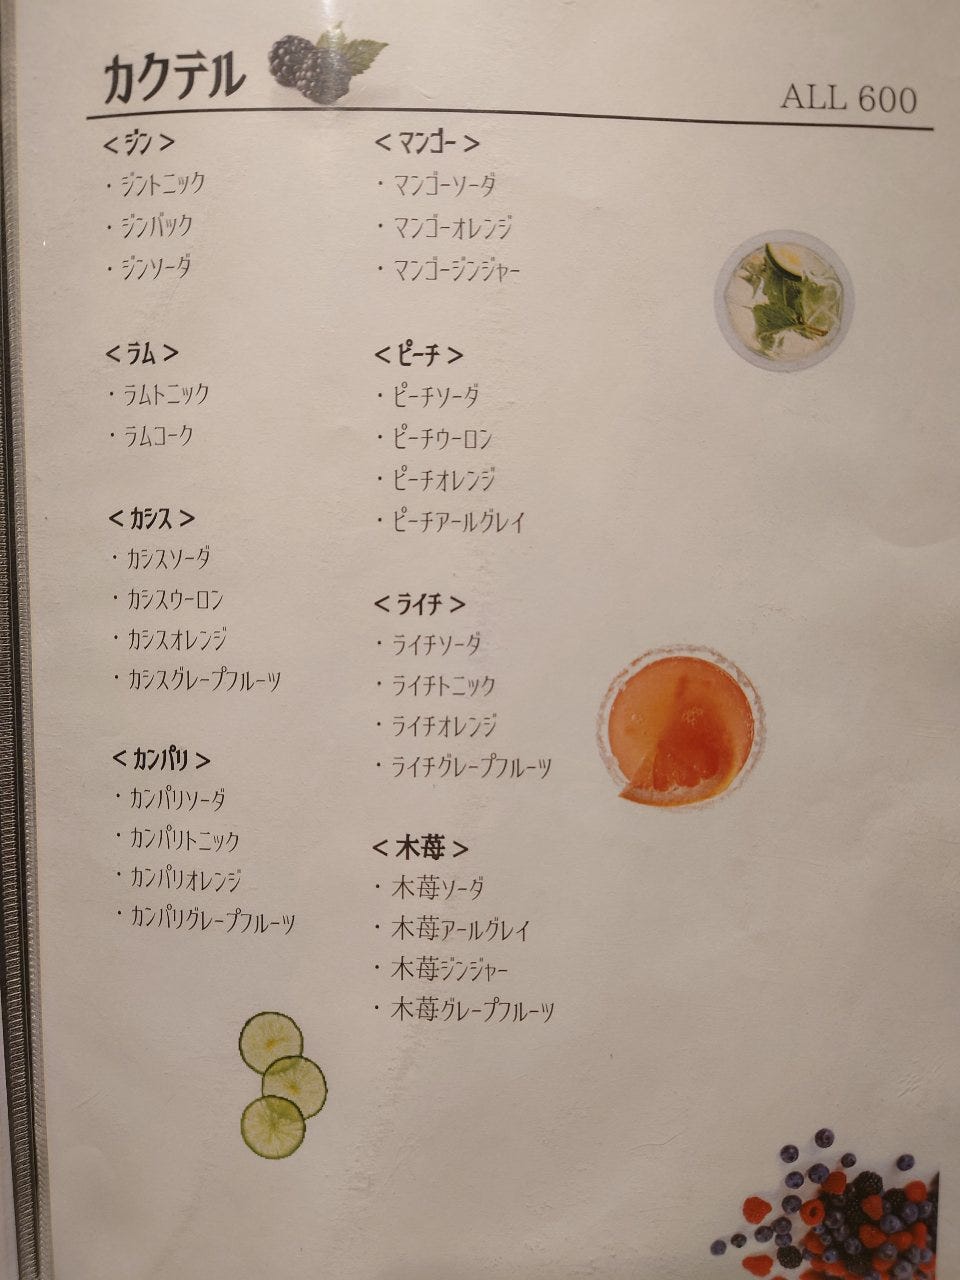 カクテル
ALL 600
<ジン>
・ジントニック
・ジンバック
・ジンソーダ
<ラム>
・ラムトニック
・ラムコーク
<カシス>
・カシスソーダ
・カシスウーロン
・カシスオレンジ
・カシスグレープフルーツ
<カンパリ>
・カンパリソーダ
・カンパリトニック
・カンパリオレンジ
・カンパリグレープフルーツ
<マンゴー>
・マンゴーソーダ
・マンゴーオレンジ
・マンゴージンジャー
<ピーチ>
・ピーチソーダ
・ピーチウーロン
・ピーチオレンジ
・ピーチアールグレイ
<ライチ>
・ライチソーダ
・ライチトニック
・ライチオレンジ
・ライチグレープフルーツ
<木苺>
・木苺ソーダ
・木苺アールグレイ
・木苺ジンジャー
・木苺グレープフルーツ